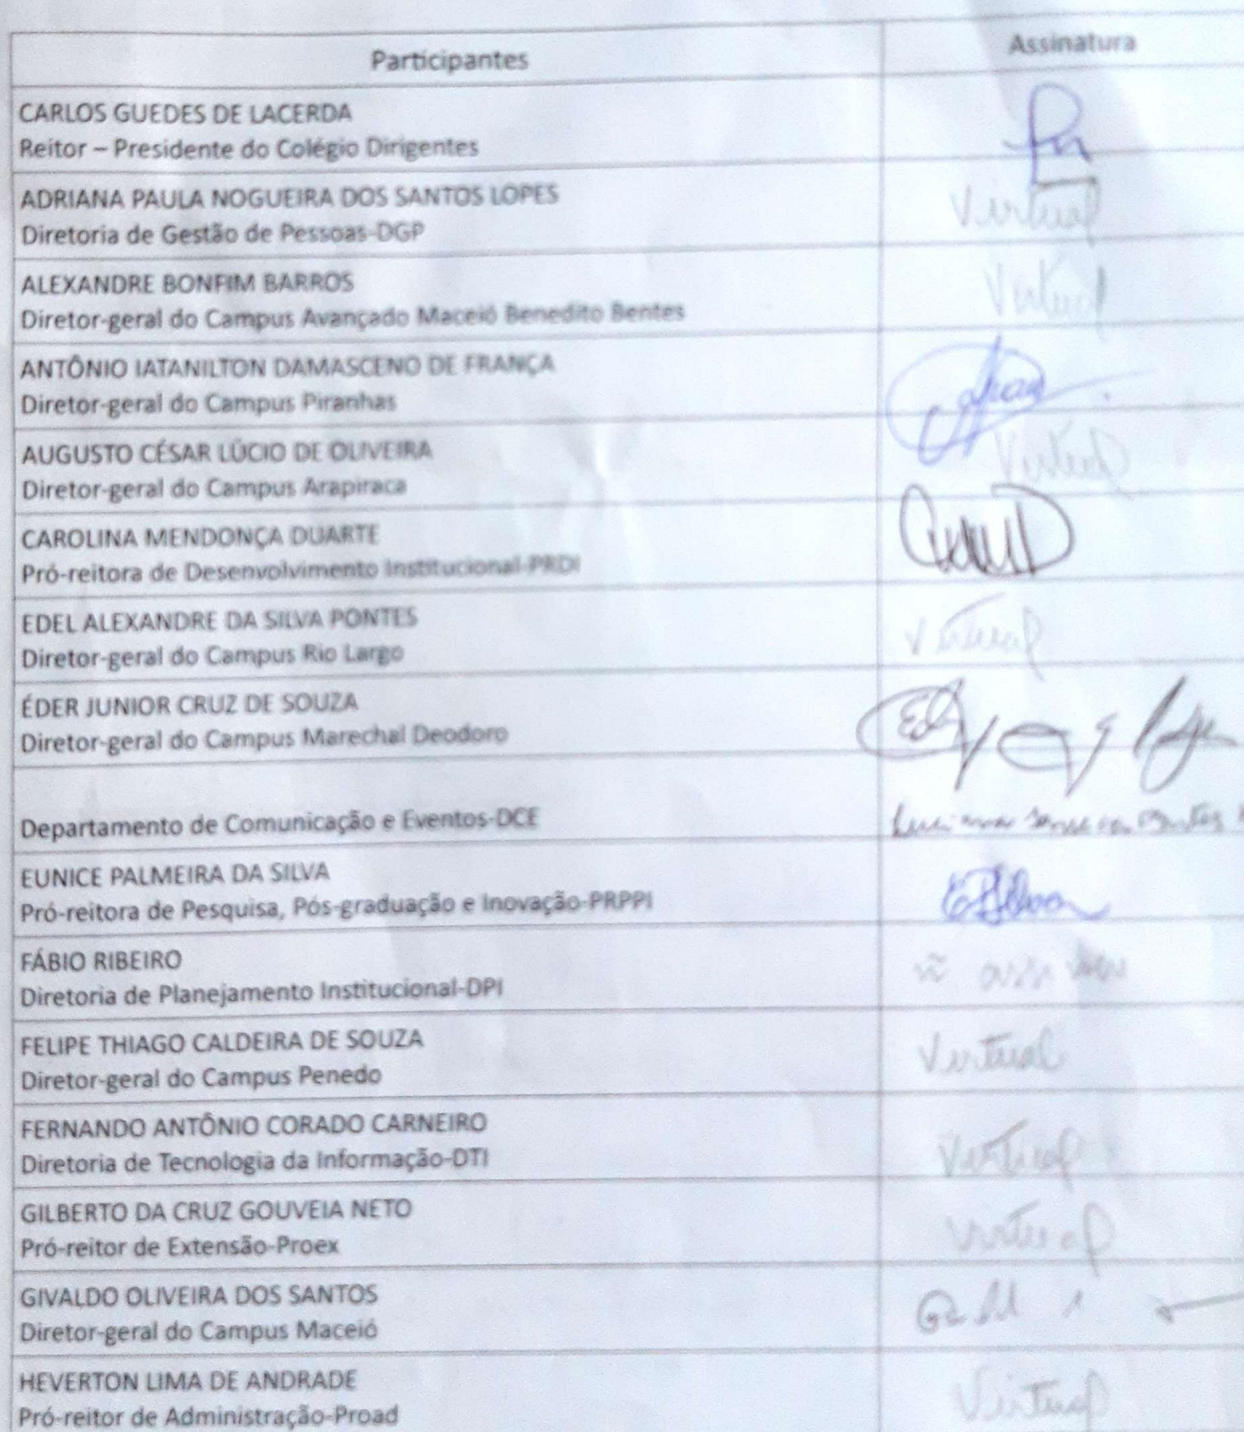 Participantes Assinatura
CARLOS GUEDES DE LACERDA
Reitor – Presidente do Colégio Dirigentes
ADRIANA PAULA NOGUEIRA DOS SANTOS LOPES
Virtual
Diretoria de Gestão de Pessoas-DGP
ALEXANDRE BONFIM BARROS
Virtual
Diretor-geral do Campus Avançado Maceió Benedito Bentes
ANTÔNIO IATANILTON DAMASCENO DE FRANÇA
Diretor-geral do Campus Piranhas
AUGUSTO CÉSAR LÚCIO DE OLIVEIRA
Virtual
Diretor-geral do Campus Arapiraca
CAROLINA MENDONÇA DUARTE
Pró-reitora de Desenvolvimento Institucional-PRDI
EDEL ALEXANDRE DA SILVA PONTES
Virtual
Diretor-geral do Campus Rio Largo
ÉDER JUNIOR CRUZ DE SOUZA
Diretor-geral do Campus Marechal Deodoro
Departamento de Comunicação e Eventos-DCE
EUNICE PALMEIRA DA SILVA
Pró-reitora de Pesquisa, Pós-graduação e Inovação-PRPPI
FÁBIO RIBEIRO
Diretoria de Planejamento Institucional-DPI
FELIPE THIAGO CALDEIRA DE SOUZA
Virtual
Diretor-geral do Campus Penedo
FERNANDO ANTÔNIO CORADO CARNEIRO
Virtual
Diretoria de Tecnologia da Informação-DTI
GILBERTO DA CRUZ GOUVEIA NETO
Virtual
Pró-reitor de Extensão-Proex
GIVALDO OLIVEIRA DOS SANTOS
Diretor-geral do Campus Maceió
HEVERTON LIMA DE ANDRADE
Virtual
Pró-reitor de Administração-Proad